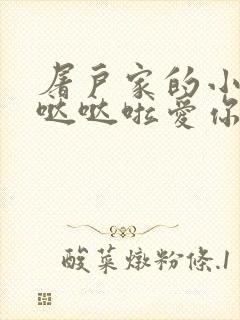 屠户家的小
哒哒啦爱你
酸菜燉粉條.1